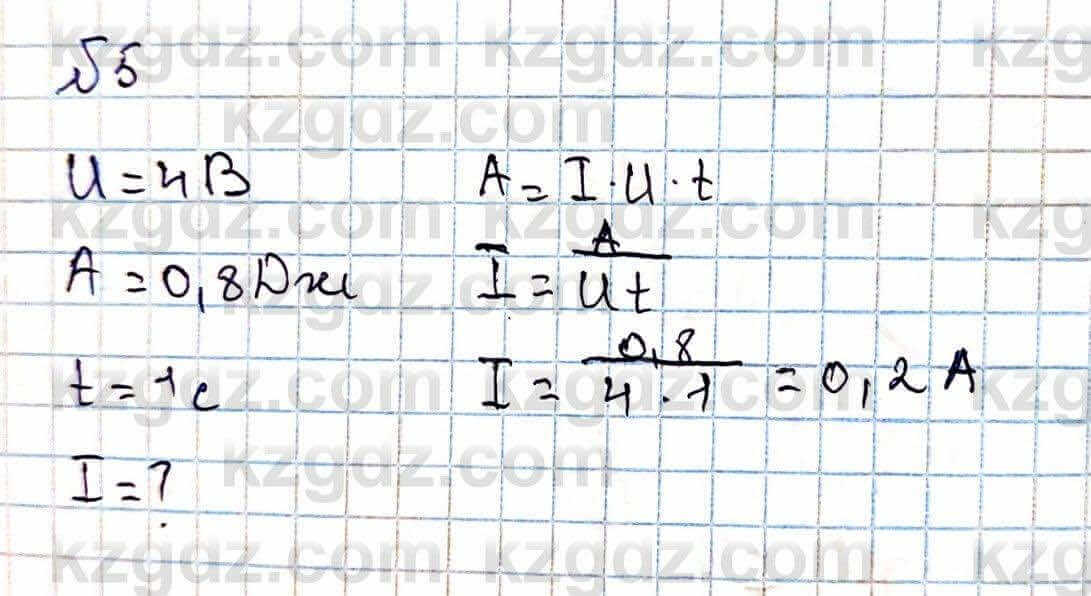 kzgdz.com kzgdz.com kzg
№5
kzgdz.com
U = 4 В
A = I · U · t
kzgdz.com kzgdz.com kzg
A = 0,8 Дж
I = A / Ut
kzgdz.com
t = 1 c
I = 0,8 / 4 · 1 = 0,2 A
kzgdz.com kzgdz.com kzg
kzgdz.com
I = ?
kzgdz.com kzgdz.com kzg